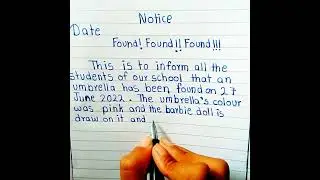 Notice
Date
Found! Found!! Found!!!
This is to inform all the
students of our school that an
umbrella has been found on 27
June 2022. The umbrella's colour
was pink and the barbie doll is
draw on it and